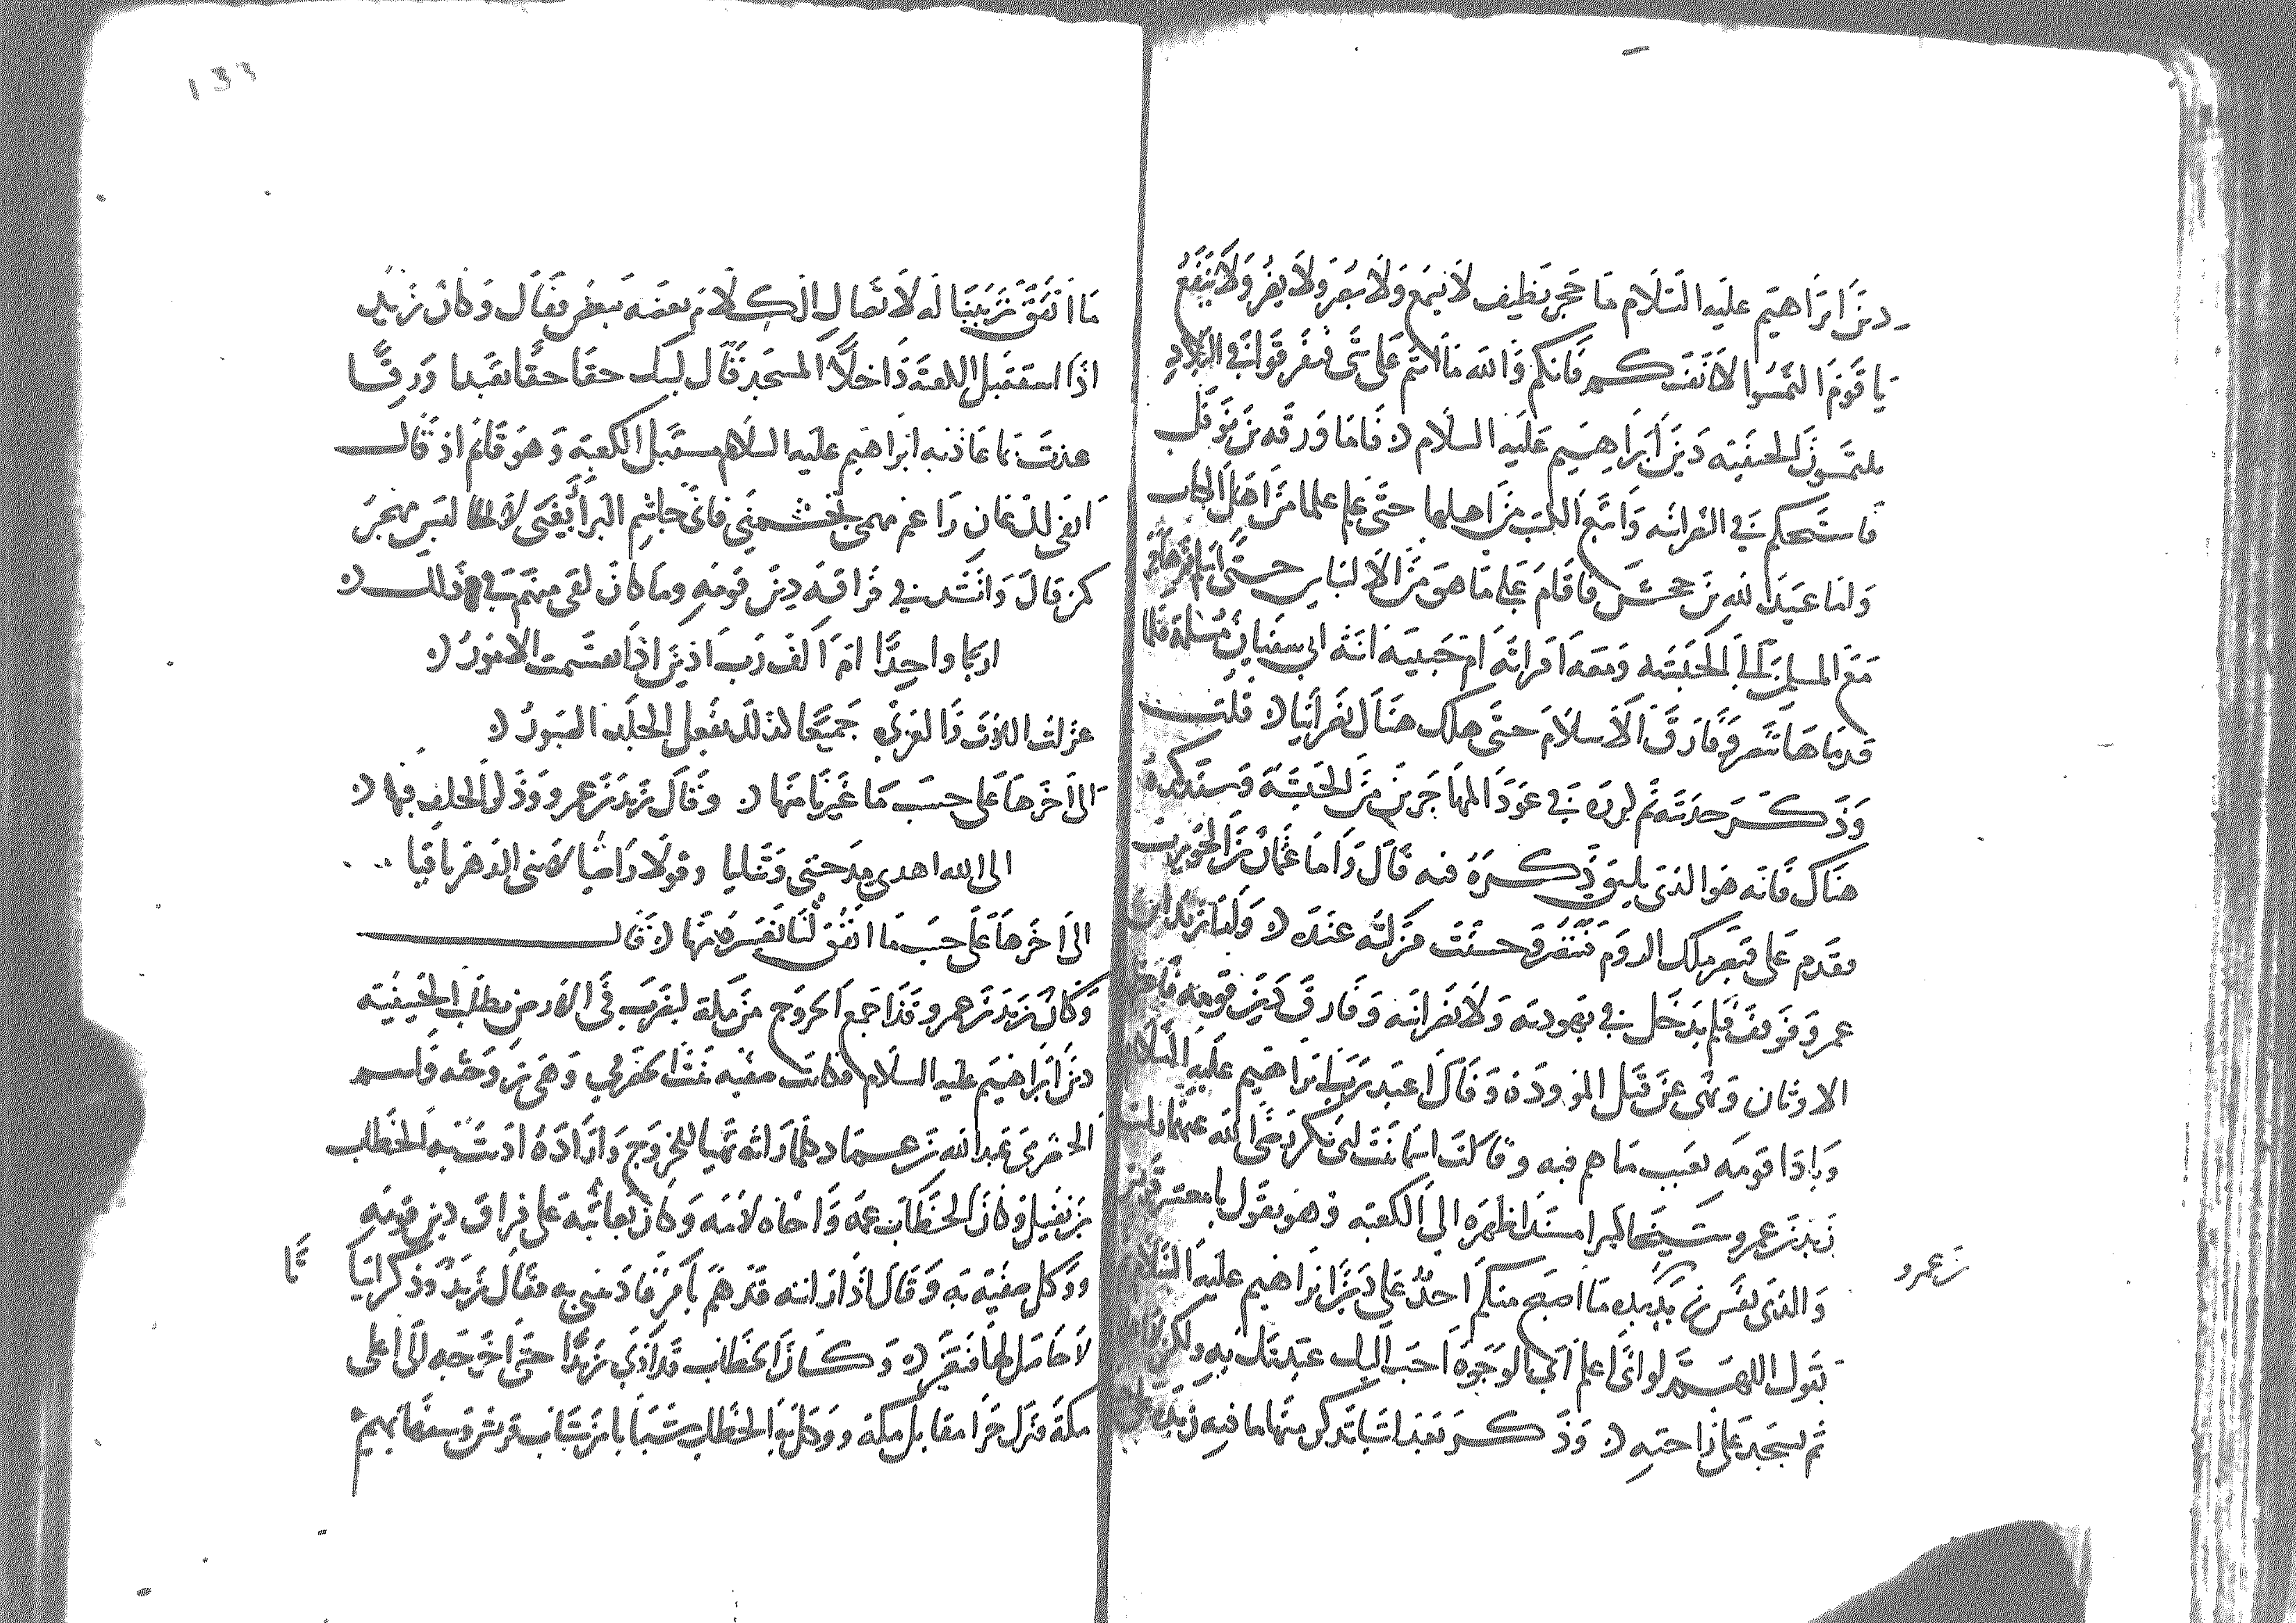 دين ابراهيم عليه السلام ما حجر نطيف لا يسمع ولا يبصر ولا يضر ولا ينفع
يا قوم التمسوا لانفسكم فانكم والله ما انتم على شى فتفرقوا في البلاد
يلتمسون الحنفيه دين ابراهيم عليه السلام فاما ورقه بن نوفل
فاستحكم في النصرانيه واتبع الكتب من اهلها حتى علم علما من اهل الكتاب
واما عبيد الله بن جحش فاقام على ما هو من الالتباس حتى اسلم ثم هاجر
مع المسلمين الى الحبشه ومعه امراته ام حبيبه ابنة ابي سفيان مسلمة فلما
قدماها تنصر وفارق الاسلام حتى هلك هنالك نصرانيا قلت
وذكر حديثه ثم لرده في عود المهاجرين من الحبشه وسنذكره
هناك فانه هو الذي يليق ذكره فيه قال واما عثمان بن الحويرث
فقدم على قيصر ملك الروم فتنصر وحسنت منزلته عنده واما زيد بن
عمرو فوقف فلم يدخل في يهوديه ولا نصرانيه وفارق دين قومه فاعتزل
الاوثان ونهى عن قتل الموودة وقال اعبد رب ابراهيم عليه السلام
وبادا قومه بعيب ما هم فيه وقالت اسما بنت ابي بكر رضي الله عنهما رايت
زيد بن عمرو شيخا كبيرا مسندا ظهره الى الكعبه وهو يقول يا معشر قريش
بن عمرو
والذي نفس زيد بيده ما اصبح منكم احد على دين ابراهيم عليه السلام
يقول اللهم لو اني اعلم اي الوجوه احب اليك عبدتك به ولكن لا اعلم
ثم يسجد على راحته وذكر بعد ابياتا تذكر منها ما فيه زياده على
١٣٣
ما اتفق ترتيبنا له لاتصال الكلام بعضه ببعض فقال وكان زيد
اذا استقبل الكعبة داخل المسجد قال لبيك حقا حقا تعبدا ورقا
عذت بما عاذ به ابراهيم عليه السلام مستقبل الكعبه وهو قائم اذ قال
انفى لك عان راغم مهما تجشمنى فانى جاشم البر ابغى لا الخال ليس مهجر
كمن قال وانشد في فراقه دين قومه وما كان لقى منهم في ذلك
اربا واحدا ام الف رب ادين اذا تقسمت الامور
عزلت اللات والعزى جميعا كذلك يفعل الجلد الصبور
الى اخرها على حسب ما غيرنا منها وقال زيد بن عمرو وذكر الحلف فيها
الى الله اهدى مدحتى وثنائيا وقولا راضيا لا ينى الدهر باقيا
الى اخرها على حسب ما اتفق لنا تفسيره منها قال
وكان زيد بن عمرو قد اجمع الخروج من مكة ليضرب في الارض يطلب الحنيفيه
دين ابراهيم عليه السلام فكانت صفيه بنت الحضرمي وهي زوجته واسم
الحضرمي عبد الله بن عماد كلما راته تهيا للخروج واراده اذنت به الخطاب
بن نفيل وكان الخطاب عمه واخاه لامه وكان يعاتبه على فراق دين قومه
ووكل صفيه به وقال اذا رايته قد هم بامر فاذنيني به فقال زيد وذكر ابيا
تا
لا حاصل لها فتفسر وكان الخطاب قد اذى زيدا حتى اخرجه الى اعلى
مكة فنزل حرا مقابل مكة ووكل به الخطاب شبابا من شباب قريش وسفهائهم